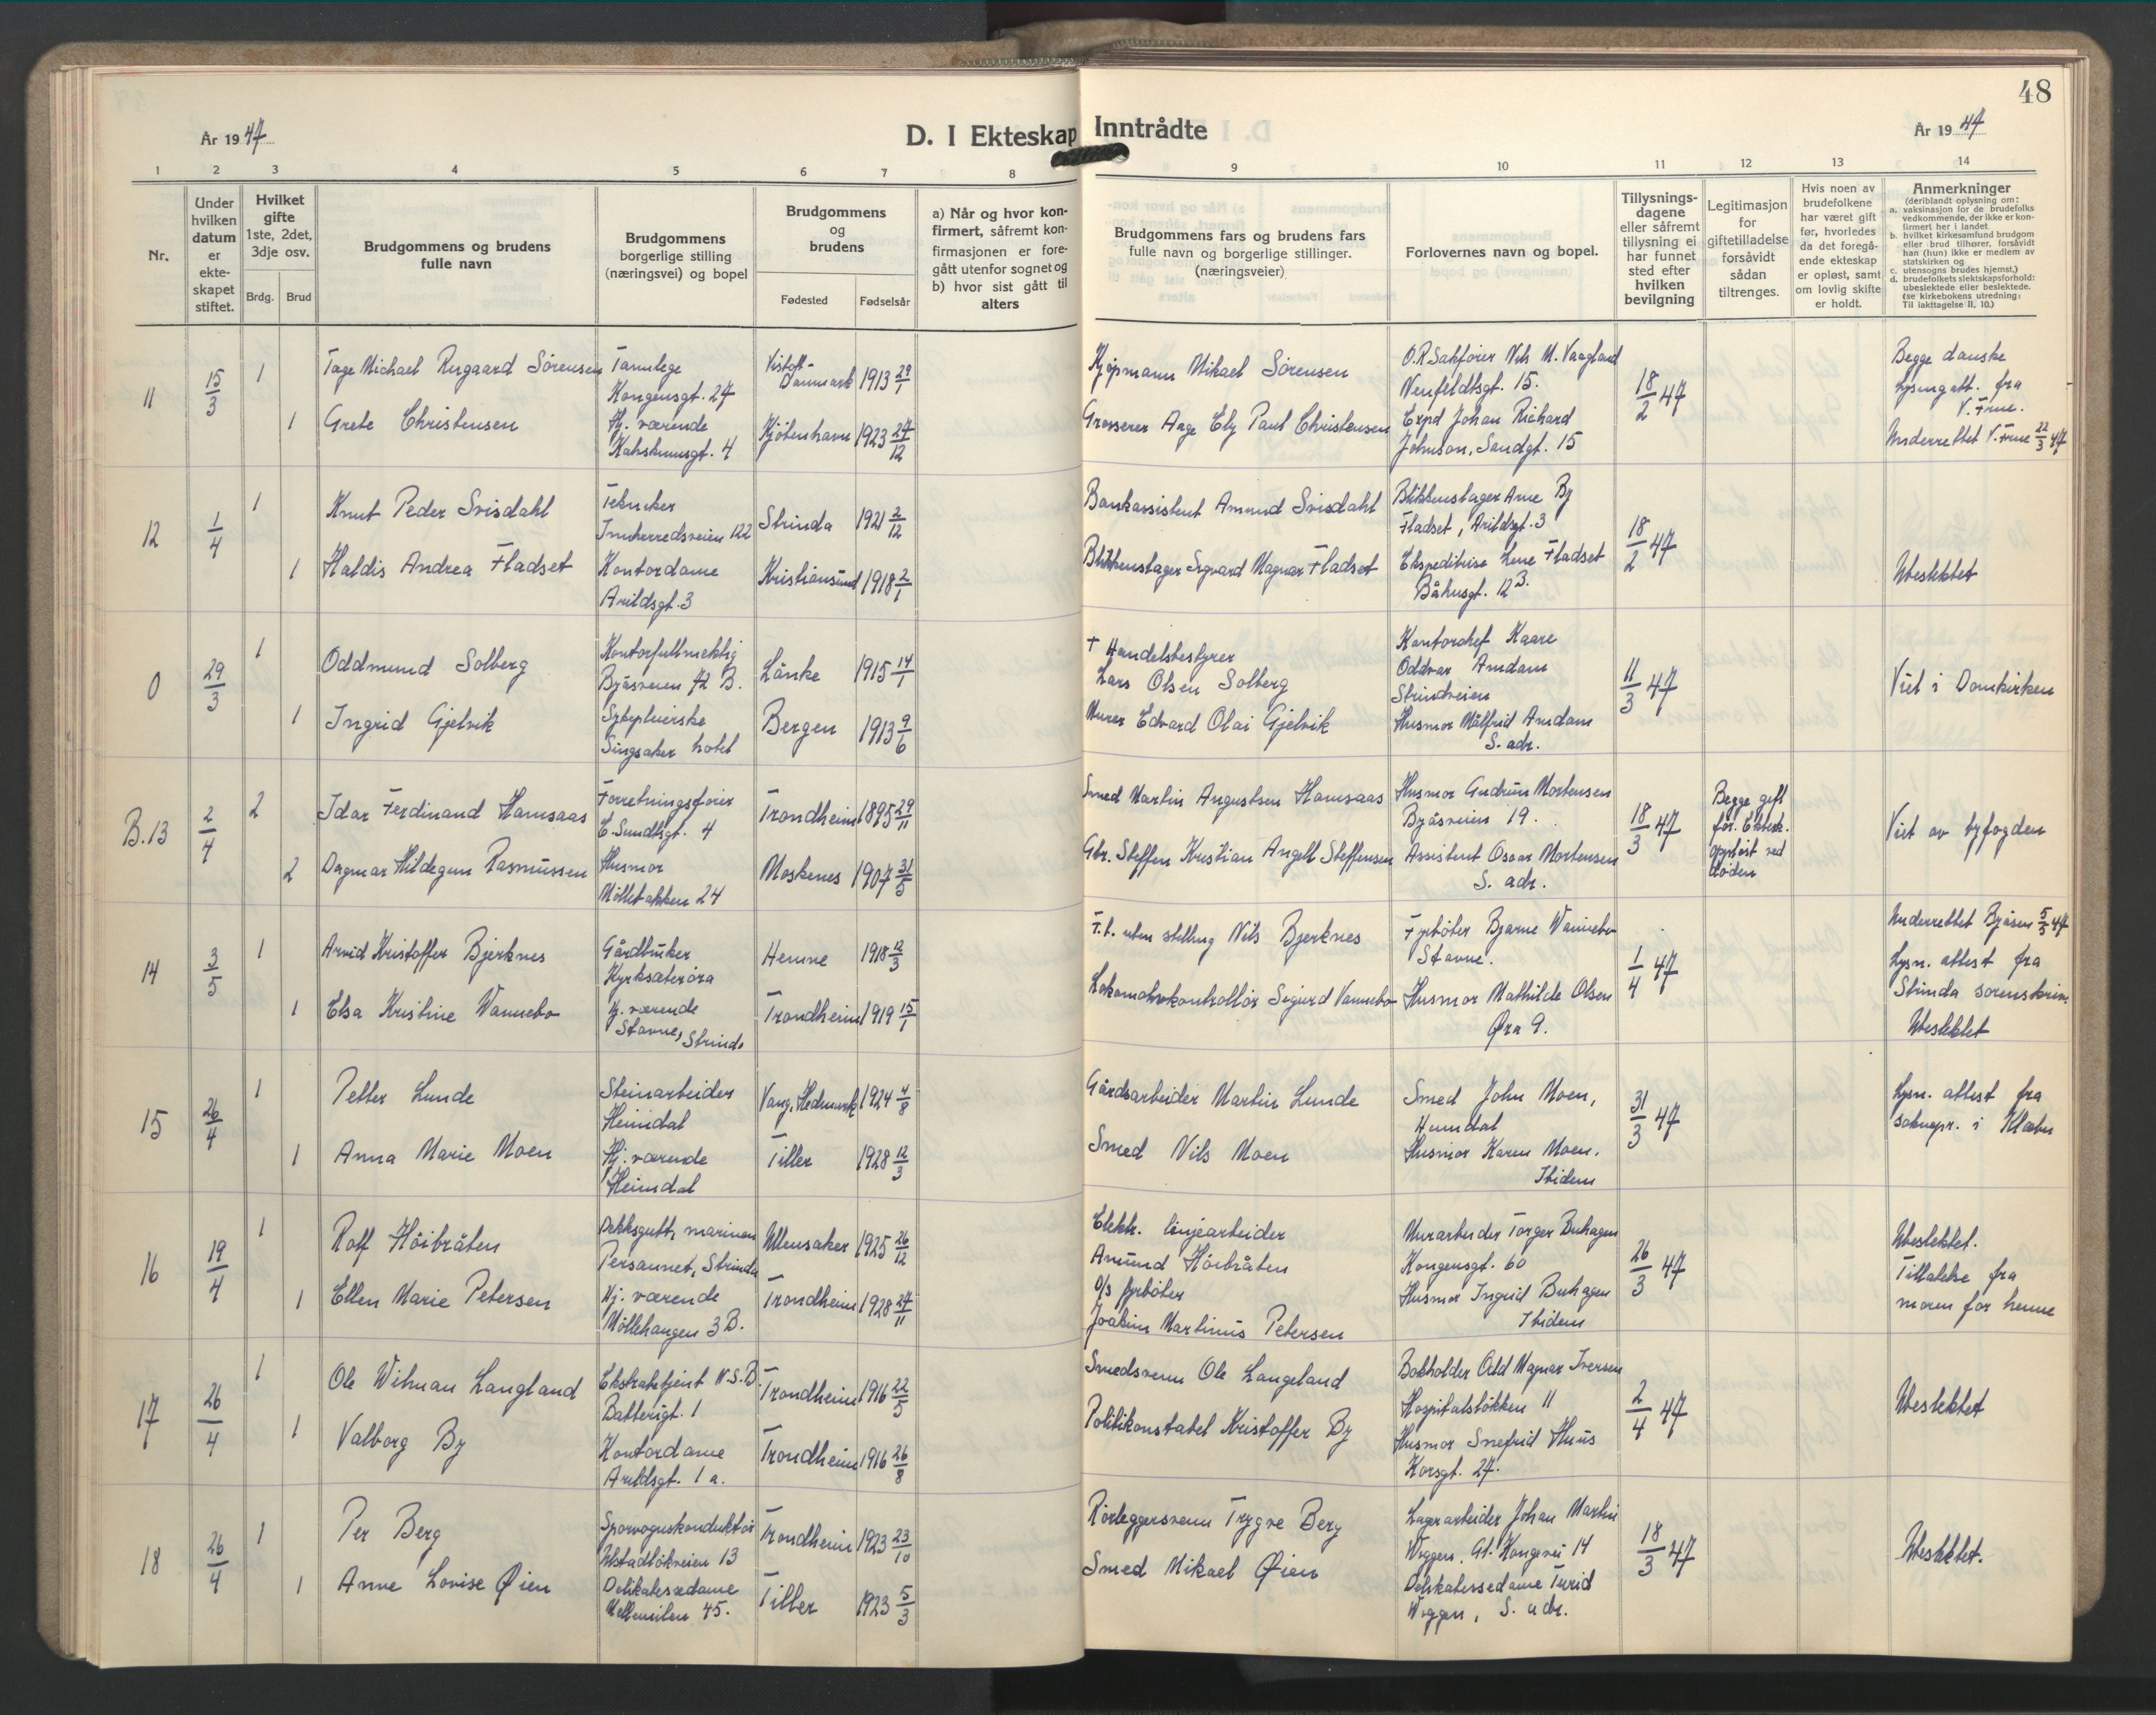 48
År 1947
D. I Ekteskap Inntrådte
År 1947
1 2 3 4 5 6 7 8 9 10 11 12 13 14
Nr.
Under hvilken datum er ekte-skapet stiftet.
Hvilket gifte 1ste, 2det, 3dje osv.
Brdg. Brud
Brudgommens og brudens fulle navn
Brudgommens borgerlige stilling (næringsvei) og bopel
Brudgommens og brudens
Fødested Fødselsår
a) Når og hvor kon-firmert, såfremt kon-firmasjonen er fore-gått utenfor sognet og
b) hvor sist gått til alters
Brudgommens fars og brudens fars fulle navn og borgerlige stillinger. (næringsveier)
Forlovernes navn og bopel.
Tillysnings-dagene eller såfremt tillysning ei har funnet sted efter hvilken bevilgning
Legitimasjon for giftetilladelse forsåvidt sådan tiltrenges.
Hvis noen av brudefolkene har været gift før, hvorledes da det foregå-ende ekteskap er opløst, samt om lovlig skifte er holdt.
Anmerkninger
(deriblandt oplysning om:
a. vaksinasjon for de brudefolks vedkommende, der ikke er kon-firmert her i landet
b. hvilket kirkesamfund brudgom eller brud tilhører, forsåvidt han (hun) ikke er medlem av statskirken og
c. utensogns brudes hjemst.)
d. brudefolkets slektskapsforhold: ubeslektede eller beslektede. (se kirkebokens utredning: Til iakttagelse II, 10.)
11 15/3 1 Tage Michael Rugaard Sörensen
Tannlege
Kongensgt. 27
Danmark 1913 29/1
Kjøpmann Mikael Sörensen
O.R.Sakfører Nils M. Vaagland
Neufeldtsgt. 15.
18/2 47
Begge danske
lysningatt. fra
V. Frue.
1 Grete Christensen
Hj. værende
4
Kjöbenhavn 1923 27/12
Grosserer Aage Ely Paul Christensen
Expd Johan Richard
Johnson, Sandgt. 15
Underrettet V. Frue 22/3 47
12 1/4 1 Knut Peder Svisdahl
Tekniker
Innherredsveien 122
Strinda 1921 2/12
Bankassistent Amund Svisdahl
Blikkenslager Arne By
Fladset, Arildsgt. 3
18/2 47
1 Haldis Andrea Fladset
Kontordame
Arildsgt. 3
Kristiansund 1918 2/1
Blikkenslager Sigvard Magnar Fladset
Ekspeditrise Lene Fladset
Båhusgt. 12 B.
Ubeslektet
0 29/3 1 Oddmund Solberg
Kontorfullmektig
Byåsveien 72 B.
Lånke 1915 14/1
† Handelsbestyrer
Lars Olsen Solberg
Kontorchef Kaare
Oddvar Amdam
Strindveien
11/3 47
Viet i Domkirken
1 Ingrid Gjelvik
Sykepleierske
Singsaker hotel
Bergen 1913 9/6
Murer Edvard Olai Gjelvik
Husmor Målfrid Amdam
S. adr.
B.13 2/4 2 Idar Ferdinand Hamsaas
Forretningsfører
E. Sundtsgt. 4
Trondheim 1895 29/11
Smed Martin Angustsen Hamsaas
Husmor Gudrun Mortensen
Byåsveien 19.
18/3 47
Begge gift
før. Ektesk.
oppløst ved
døden
Viet av byfogden
2 Dagmar Hildegun Rasmussen
Husmor
Möllebakken 24
Moskenes 1907 31/5
Gbr. Steffen Kristian Angell Steffensen
Assistent Oscar Mortensen
S. adr.
14 3/5 1 Arvid Kristoffer Bjerknes
Gårdbruker
Kyrksæterøra
Hemne 1918 12/3
F.t. uten stilling Nils Bjerknes
Fyrbøter Bjarne Wannebo
Stavne.
1/4 47
Underrettet Byåsen 5/5 47
Lysn. attest fra
Strinda sorenskriv.
Ubeslektet
1 Elsa Kristine Wannebo
Hj. værende
Stavne, Strinda
Trondheim 1919 15/1
Lokomotivkontrollør Sigurd Vannebo
Husmor Mathilde Olsen
Øra 9.
15 26/4 1 Petter Lunde
Steinarbeider
Heimdal
Vang, Hedmark 1924 4/8
Gårdsarbeider Martin Lunde
Smed John Moen,
Heimdal
31/3 47
Lysn. attest fra
sokuepr. i Klæbu
1 Anna Marie Moen
Hj. værende
Heimdal
Tiller 1928 12/3
Smed Nils Moen
Husmor Karen Moen.
Ibidem
16 19/4 1 Rolf Höibråten
Dekksgutt, marinen
Persaunet, Strinda
Ullensaker 1925 26/12
Elektr. linjearbeider
Amund Höibråten
Murarbeider Torger Buhagen
Kongensgt. 60
26/3 47
Ubeslektet.
Tillatelse fra
moren for henne
1 Ellen Marie Petersen
Hj. værende
Möllehaugen 3 B.
Trondheim 1928 27/11
O/s fyrbøter
Joakim Martinus Petersen
Husmor Ingrid Buhagen
Ibidem
17 26/4 1 Ole Wilman Langland
Ekstrabetjent N.S.B.
Batterigt. 1
Trondheim 1916 22/5
Smedsvenn Ole Langeland
Bokholder Odd Magnar Iversen
Hospitalsløkken 11
2/4 47
Ubeslektet
1 Valborg By
Kontordame
Arildsgt. 1 a.
Trondheim 1916 26/8
Politikonstabel Kristoffer By
Husmor Snefrid Huus
Korsgt. 27.
18 26/4 1 Per Berg
Sporvognskonduktör
Ulstadløkveien 13
Trondheim 1923 23/10
Rørleggersvenn Trygve Berg
Lagerarbeider Johan Martin
Wiggen, Gl. Kongevei 14
18/3 47
Ubeslektet.
1 Anne Lovise Øien
Delikatessedame
45.
Tiller 1923 5/3
Smed Mikael Øien
Delikatessedame Turid
Wiggen, S. adr.